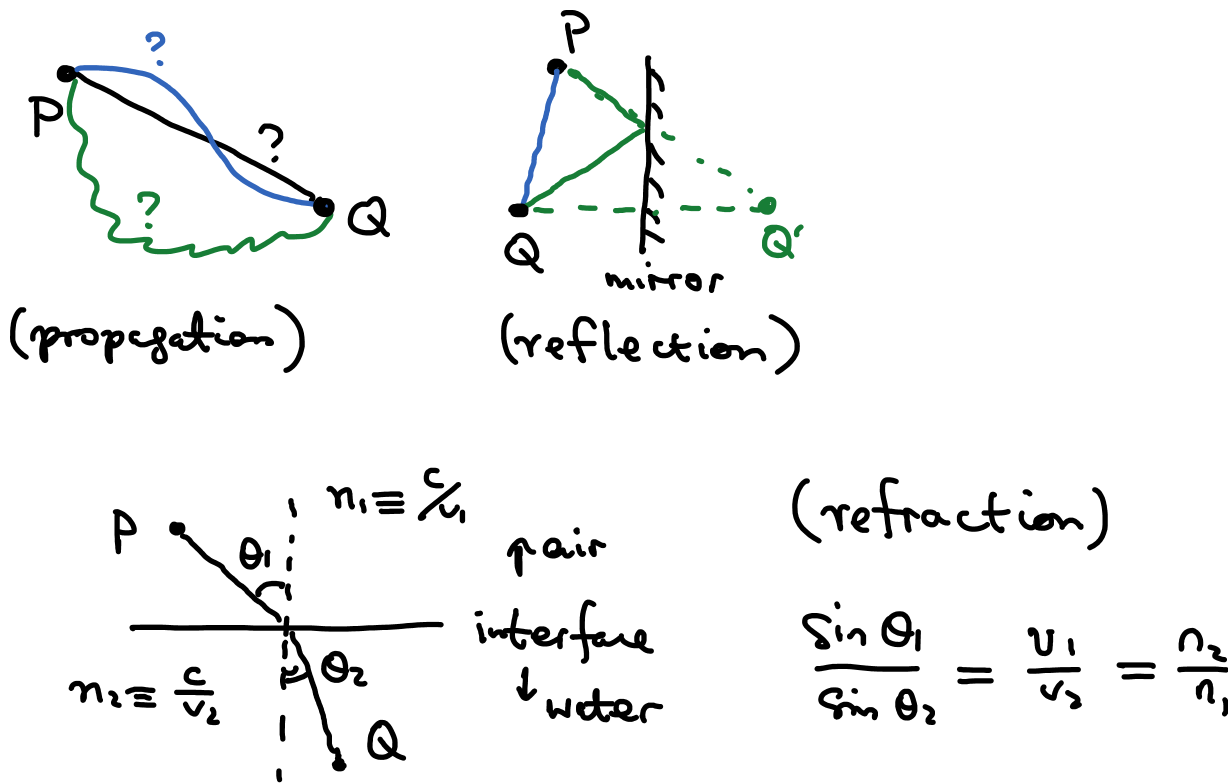 ?
P
?
?
Q
(propagation)
P
Q
Q'
mirror
(reflection)
n₁ ≡ c/v₁
P
θ₁
air
interface
↓ water
θ₂
n₂ ≡ c/v₂
Q
(refraction)
sin θ₁ / sin θ₂ = v₁/v₂ = n₂/n₁